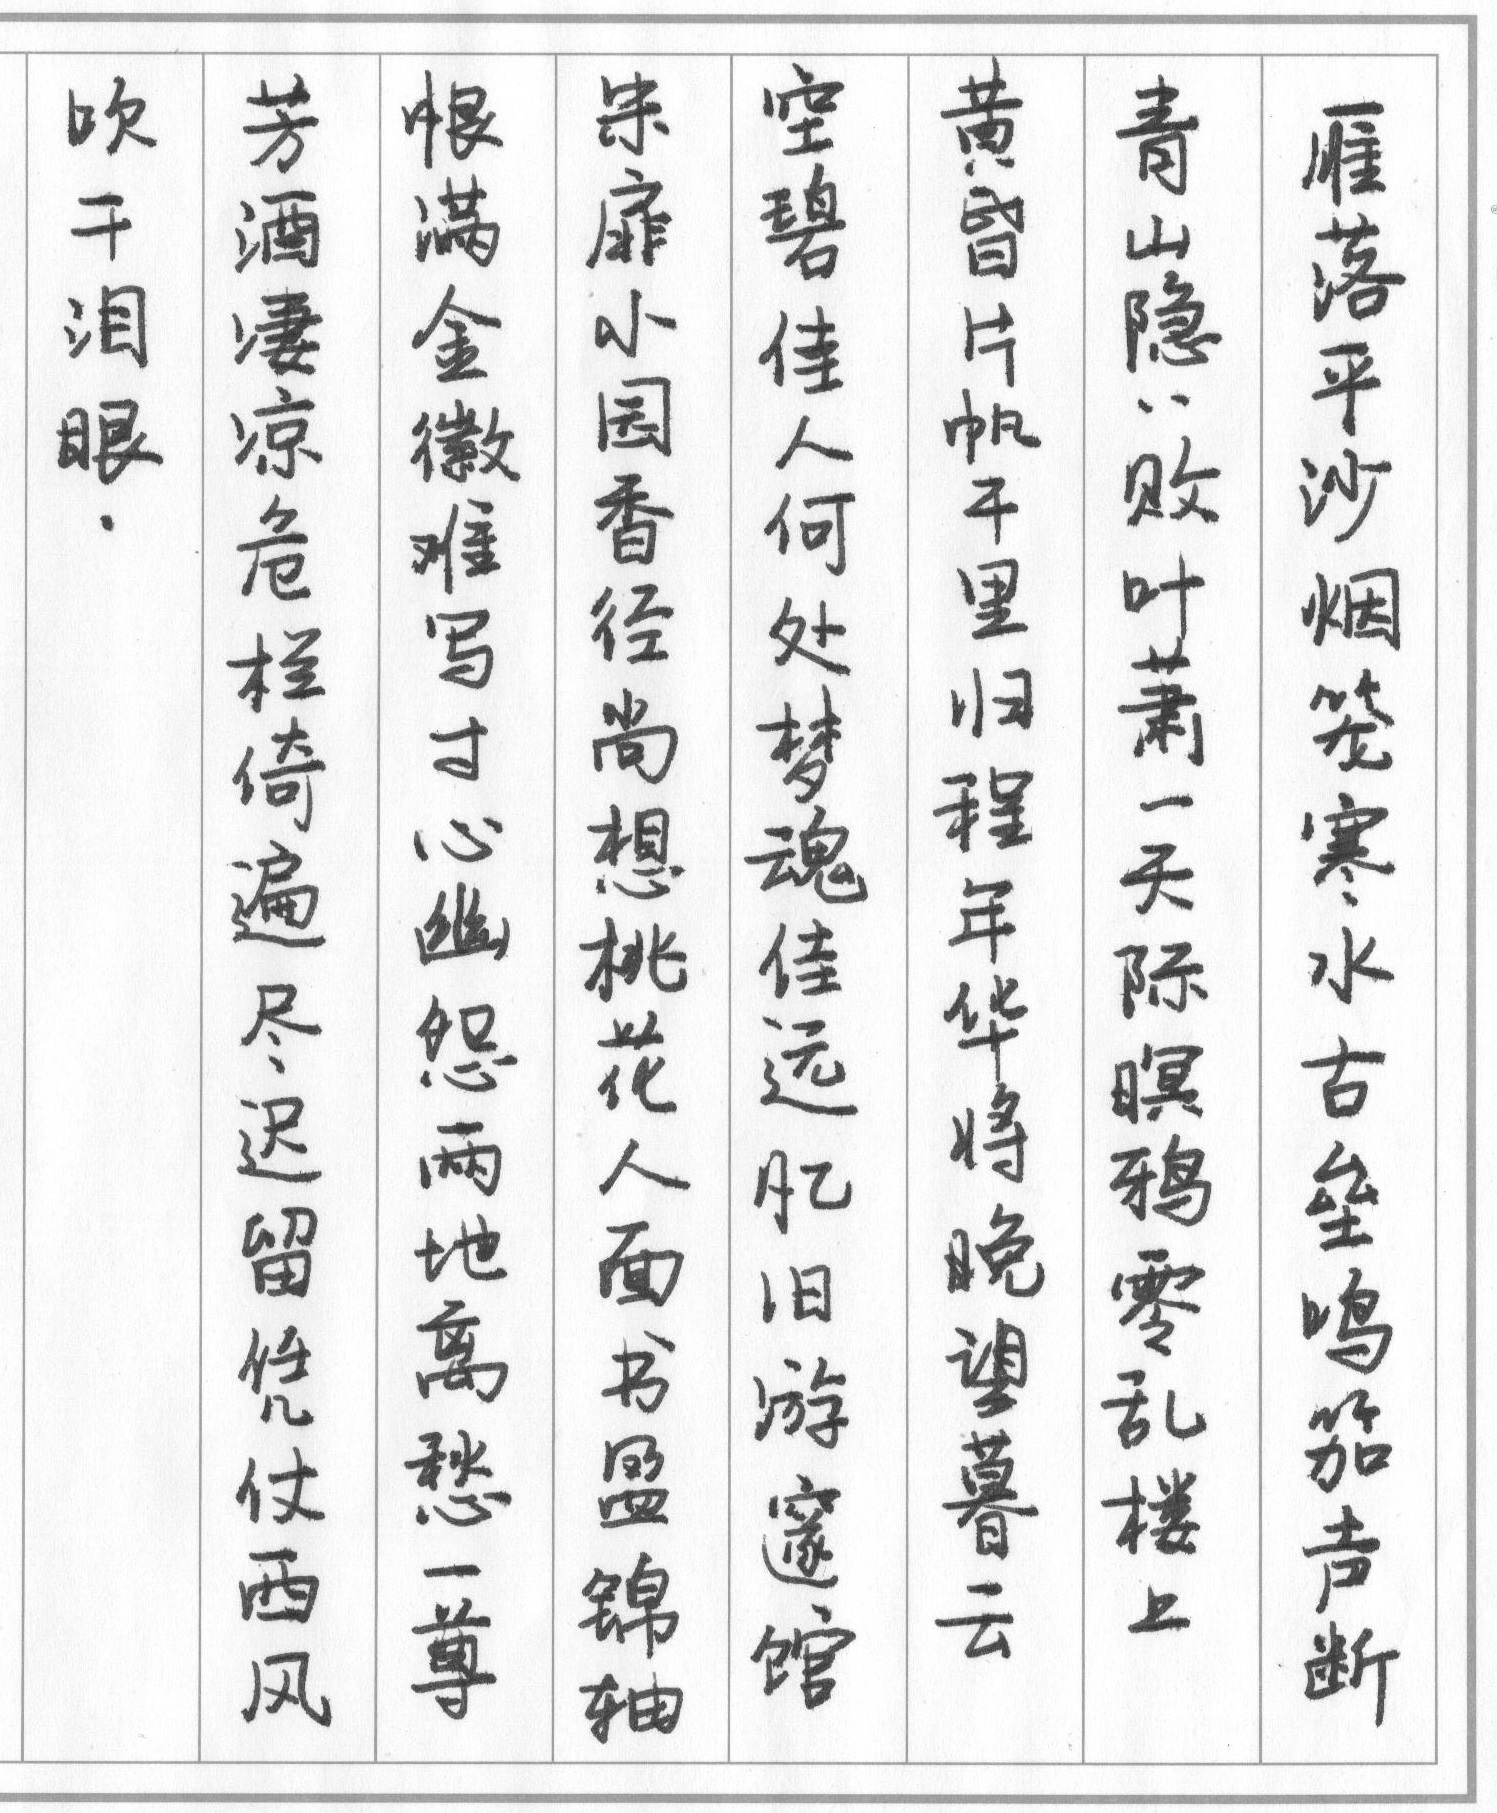 雁落平沙烟笼寒水古垒鸣笳声断
青山隐〻败叶萧一天际暝鸦零乱楼上
黄昏片帆千里归程年华将晚望暮云
空碧佳人何处梦魂佳远忆旧游邃馆
朱扉小园香径尚想桃花人面书盈锦轴
恨满金徽难写寸心幽怨两地离愁一尊
芳酒凄凉危栏倚遍尽迟留凭仗西风
吹干泪眼.